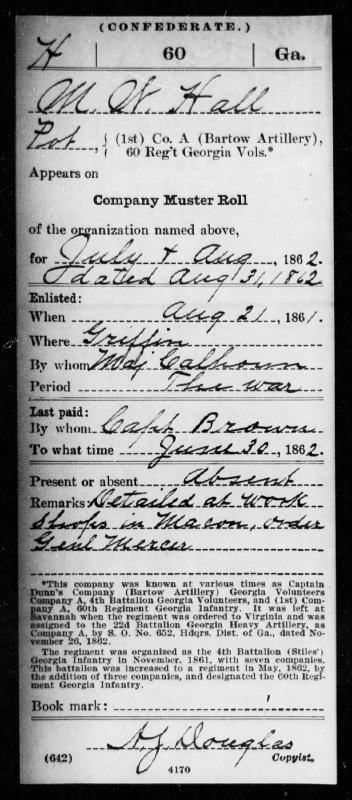 (CONFEDERATE.)
H | 60 | Ga.
M. W. Hall
Pvt, { (1st) Co. A (Bartow Artillery),
60 Reg't Georgia Vols.*
Appears on
Company Muster Roll
of the organization named above,
for July & Aug, 1862.
dated Aug 31, 1862
Enlisted:
When Aug 21, 1861.
Where Griffin
By whom Maj Calhoun
Period The war
Last paid:
By whom Capt Brown
To what time June 30, 1862.
Present or absent Absent
Remarks: Detailed at work
Shops in Macon, order
Genl Mercer
*This company was known at various times as Captain
Dunn's Company (Bartow Artillery) Georgia Volunteers
Company A, 4th Battalion Georgia Volunteers, and (1st) Com-
pany A, 60th Regiment Georgia Infantry. It was left at
Savannah when the regiment was ordered to Virginia and was
assigned to the 22d Battalion Georgia Heavy Artillery, as
Company A, by S. O. No. 652, Hdqrs. Dist. of Ga., dated No-
vember 26, 1862.
The regiment was organized as the 4th Battalion (Stiles')
Georgia Infantry in November, 1861, with seven companies.
This battalion was increased to a regiment in May, 1862, by
the addition of three companies, and designated the 60th Regi-
ment Georgia Infantry.
Book mark:
A. J. Douglas
(642) Copyist.
4170